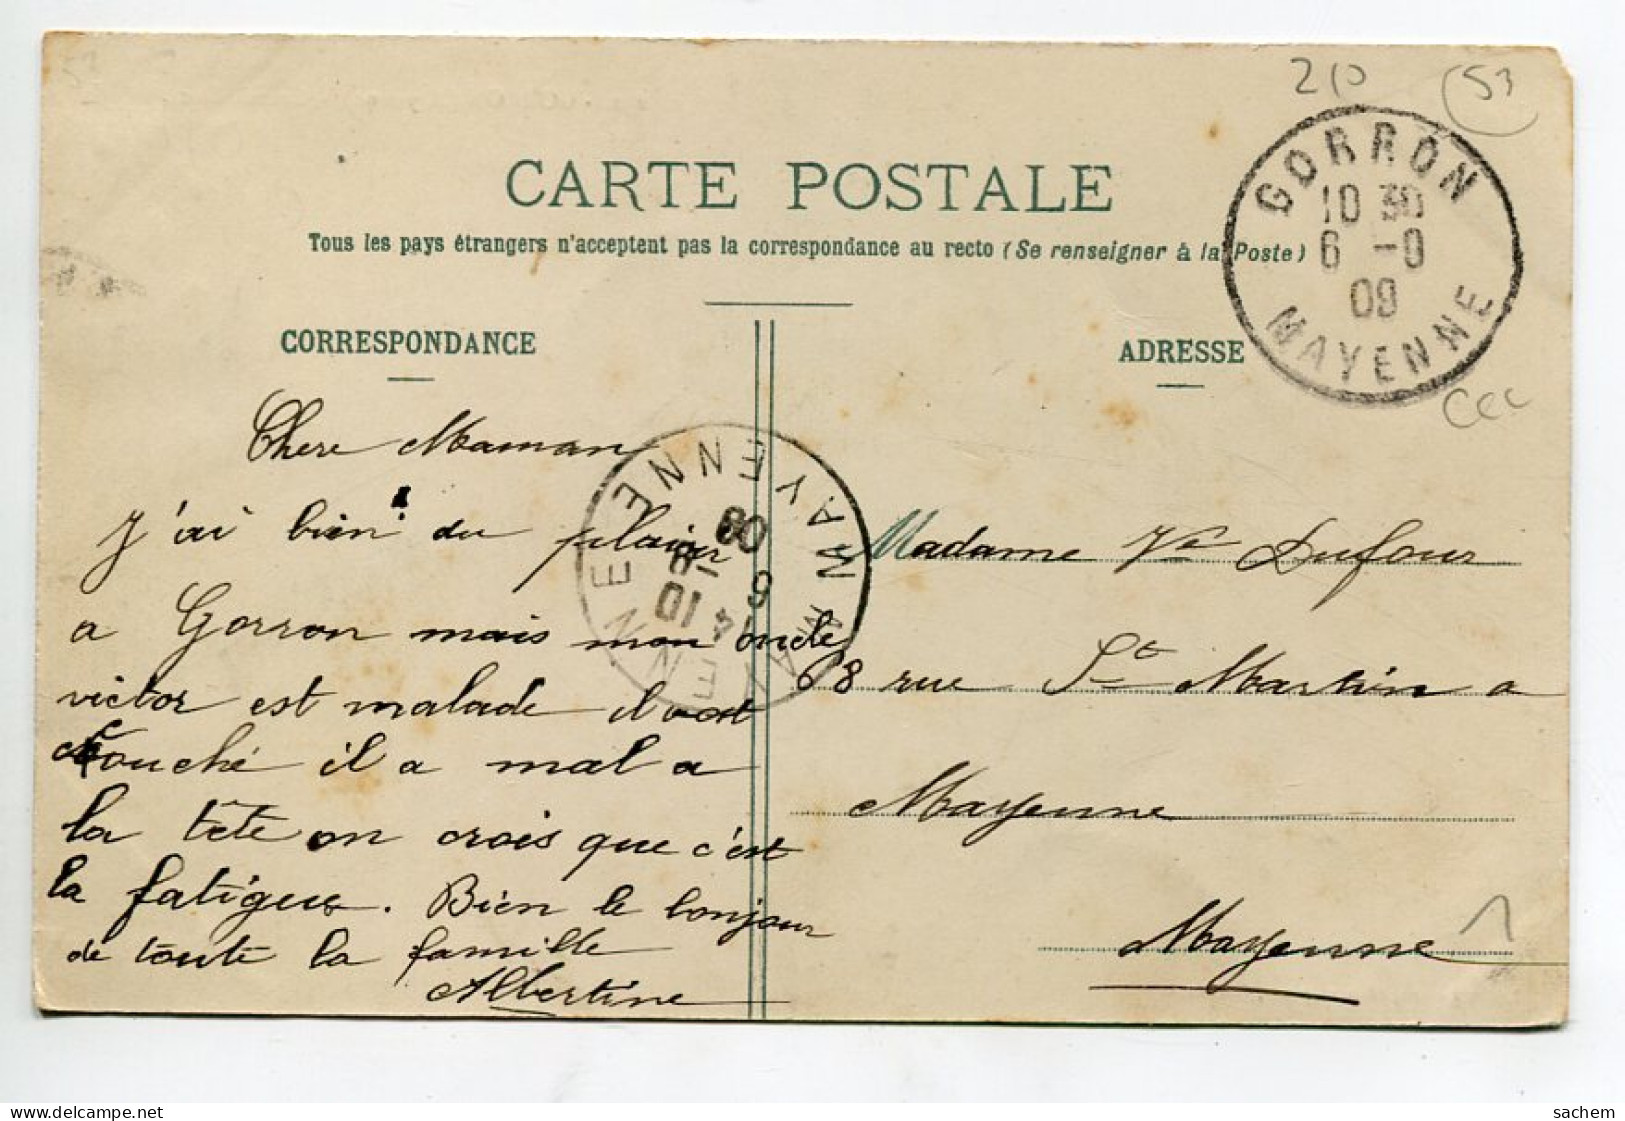 210 53
CARTE POSTALE
Tous les pays étrangers n'acceptent pas la correspondance au recto (Se renseigner à la Poste)
GORRON
10 30
6 - 9
09
MAYENNE
CORRESPONDANCE
ADRESSE
Chere Maman
J'ai bien du plaisir
a Gorron mais mon oncle
victor est malade il est
couché il a mal a
la tête on crois que c'est
la fatigue. Bien le bonjour
de toute la famille
Albertine
MAYENNE
14 10
6 - 9
09
MAYENNE
Madame Ve Dufour
68 rue St Martin a
Mayenne
Mayenne
delcampe.net
sachem